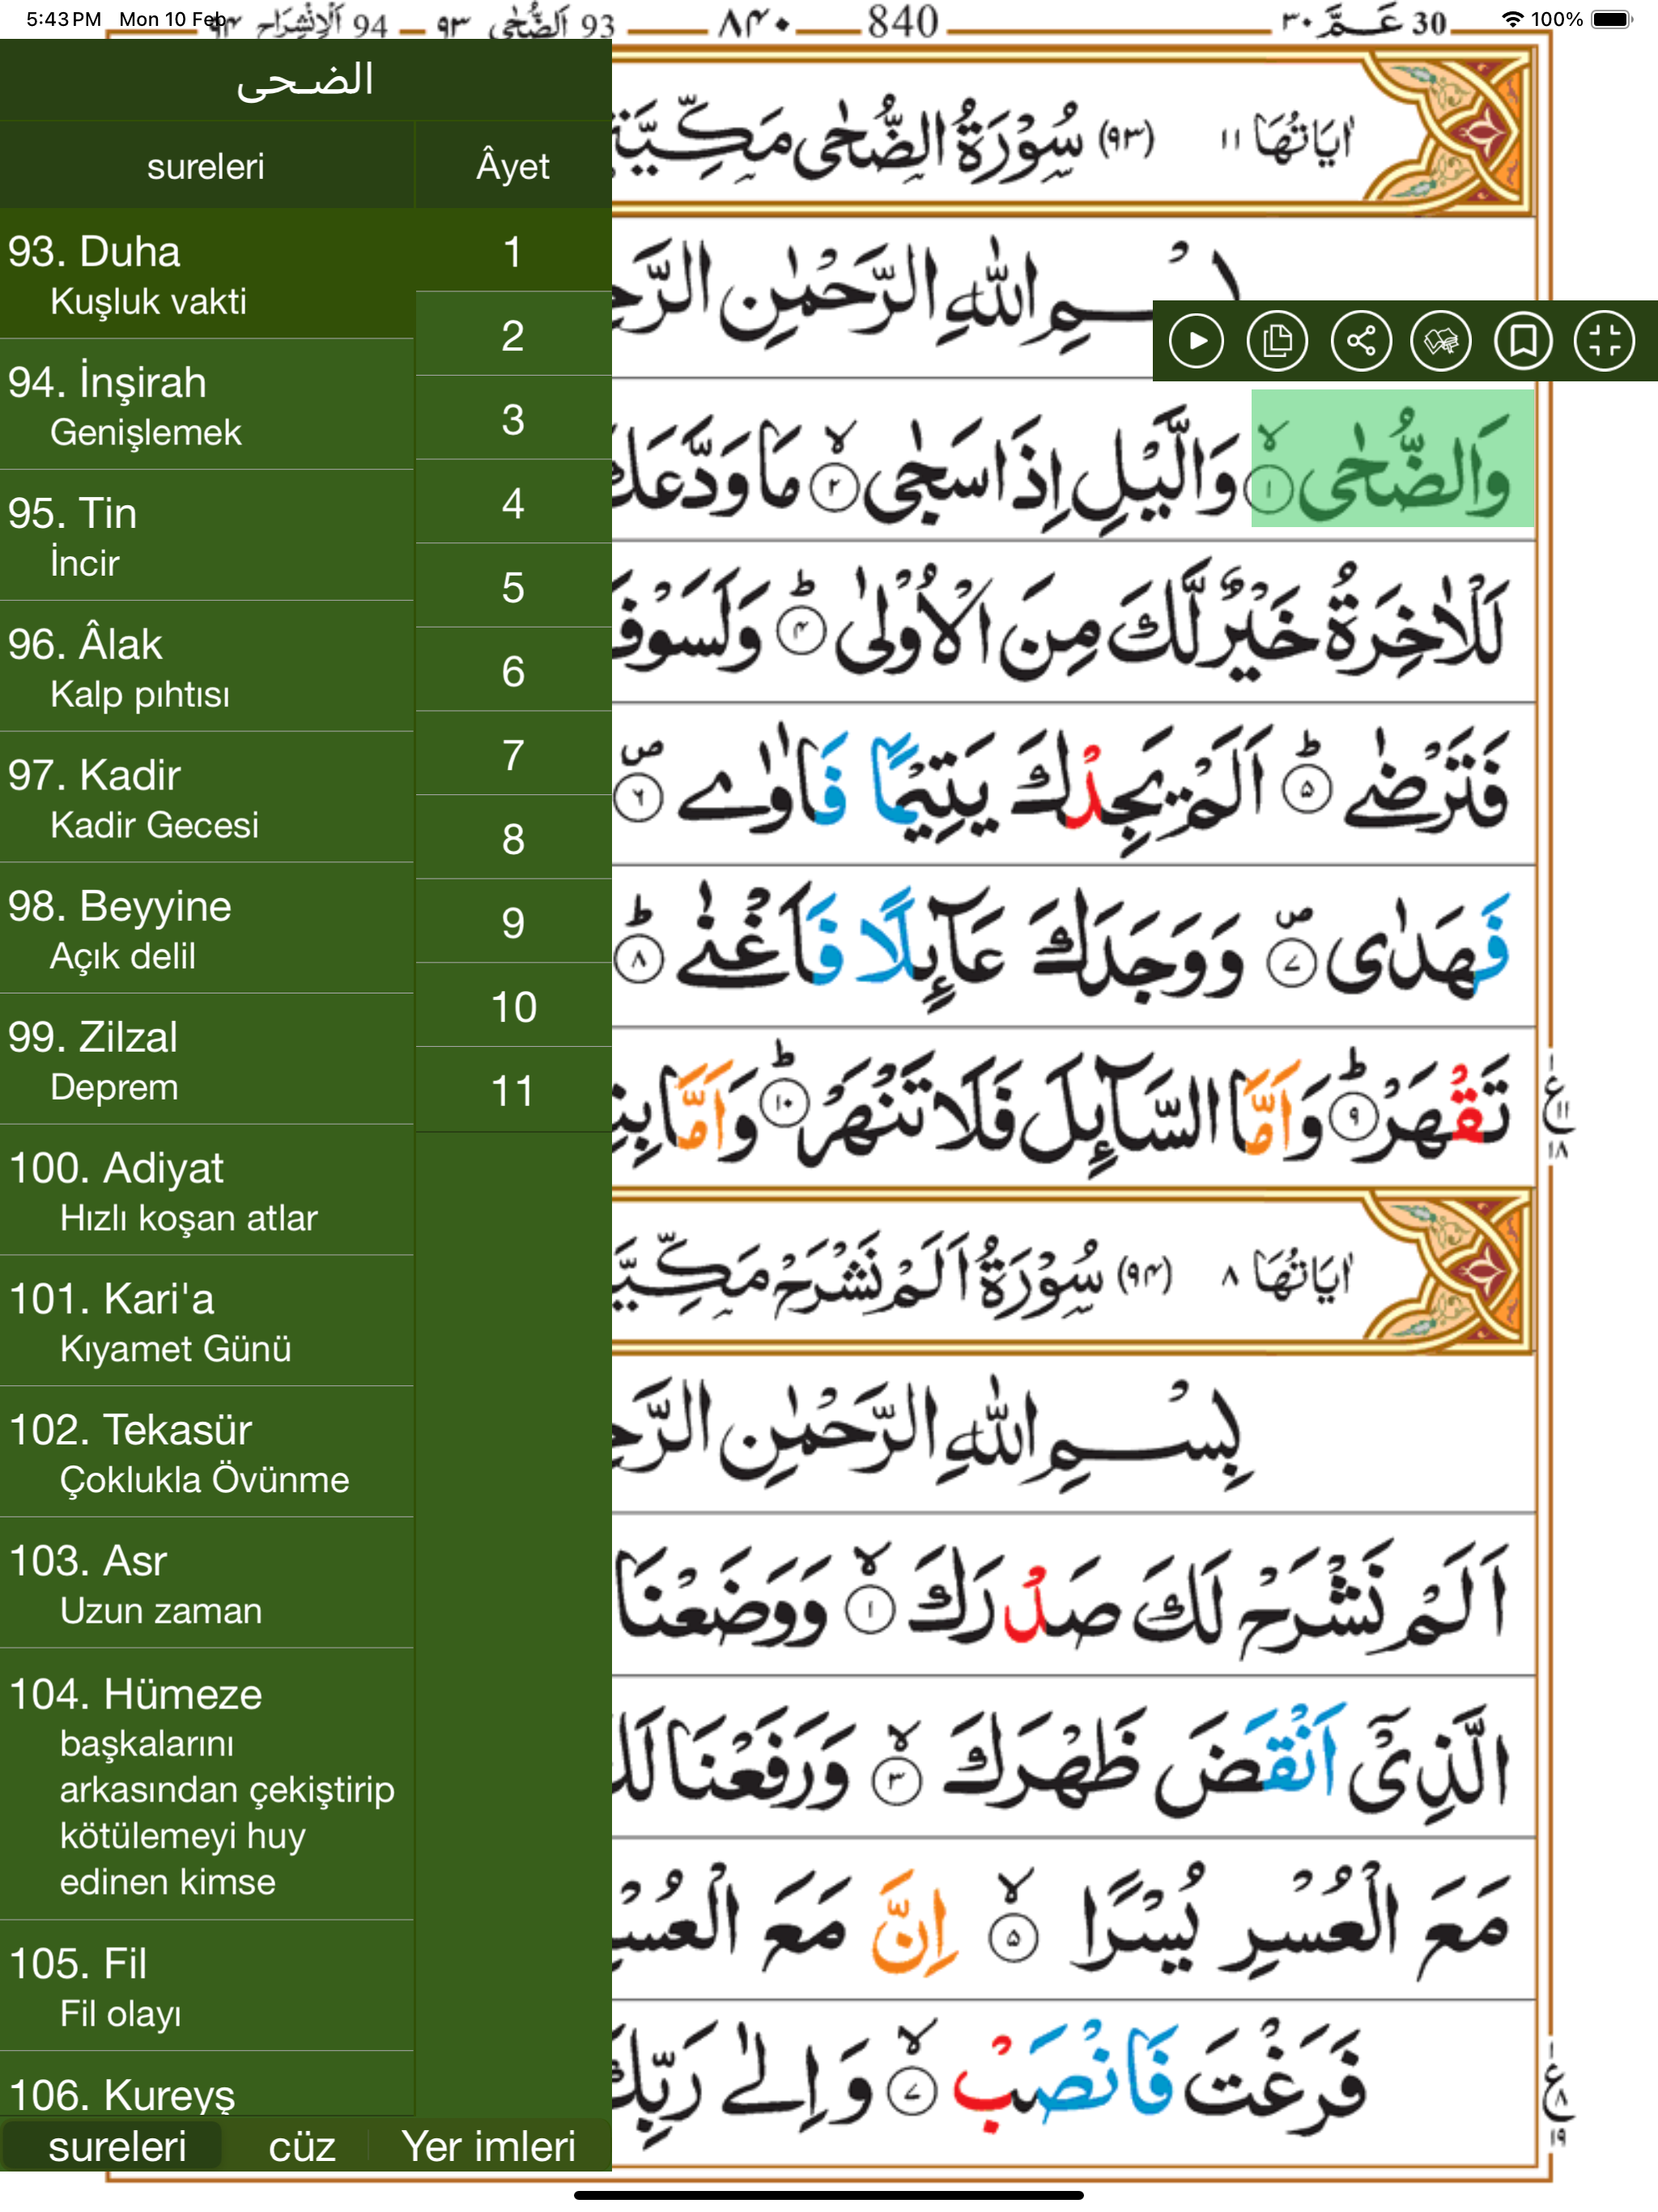 5:43 PM Mon 10 Feb
100%
93 اَلضُّحٰى ٩٣ — 94 اَلْاِنْشِرَاح ٩٤
٨٤٠ — 840
30 عَـمَّ ٣٠
الضحى
sureleri
Âyet
93. Duha
Kuşluk vakti
94. İnşirah
Genişlemek
95. Tin
İncir
96. Âlak
Kalp pıhtısı
97. Kadir
Kadir Gecesi
98. Beyyine
Açık delil
99. Zilzal
Deprem
100. Adiyat
Hızlı koşan atlar
101. Kari'a
Kıyamet Günü
102. Tekasür
Çoklukla Övünme
103. Asr
Uzun zaman
104. Hümeze
başkalarını
arkasından çekiştirip
kötülemeyi huy
edinen kimse
105. Fil
Fil olayı
106. Kureyş
1
2
3
4
5
6
7
8
9
10
11
sureleri
cüz
Yer imleri
اٰيَاتُهَا ١١ (٩٣) سُوْرَةُ الضُّحٰى مَكِّيَّةٌ
بِسْمِ اللّٰهِ الرَّحْمٰنِ
وَالضُّحٰى ۙ‏ ١ وَالَّيْلِ اِذَا سَجٰى ۙ‏ ٢ مَا وَدَّعَكَ
لَلْاٰخِرَةُ خَيْرٌ لَّكَ مِنَ الْاُوْلٰى ؕ‏ ٤ وَلَسَوْفَ
فَتَرْضٰى ؕ‏ ٥ اَلَمْ يَجِدْكَ يَتِيْمًا فَاٰوٰى ۖ‏ ٦
فَهَدٰى ۖ‏ ٧ وَوَجَدَكَ عَآئِلًا فَاَغْنٰى ؕ‏ ٨
تَقْهَرْ ؕ‏ ٩ وَاَمَّا السَّآئِلَ فَلَا تَنْهَرْ ؕ‏ ١٠ وَاَمَّا
ع ١١ ١٨
اٰيَاتُهَا ٨ (٩٤) سُوْرَةُ اَلَمْ نَشْرَحْ مَكِّيَّةٌ
بِسْمِ اللّٰهِ الرَّحْمٰنِ
اَلَمْ نَشْرَحْ لَكَ صَدْرَكَ ۙ‏ ١ وَوَضَعْنَا
الَّذِىْۤ اَنْقَضَ ظَهْرَكَ ۙ‏ ٣ وَرَفَعْنَا
مَعَ الْعُسْرِ يُسْرًا ۙ‏ ٥ اِنَّ مَعَ
فَرَغْتَ فَانْصَبْ ۙ‏ ٧ وَاِلٰى رَبِّكَ
ع ٨ ١٩